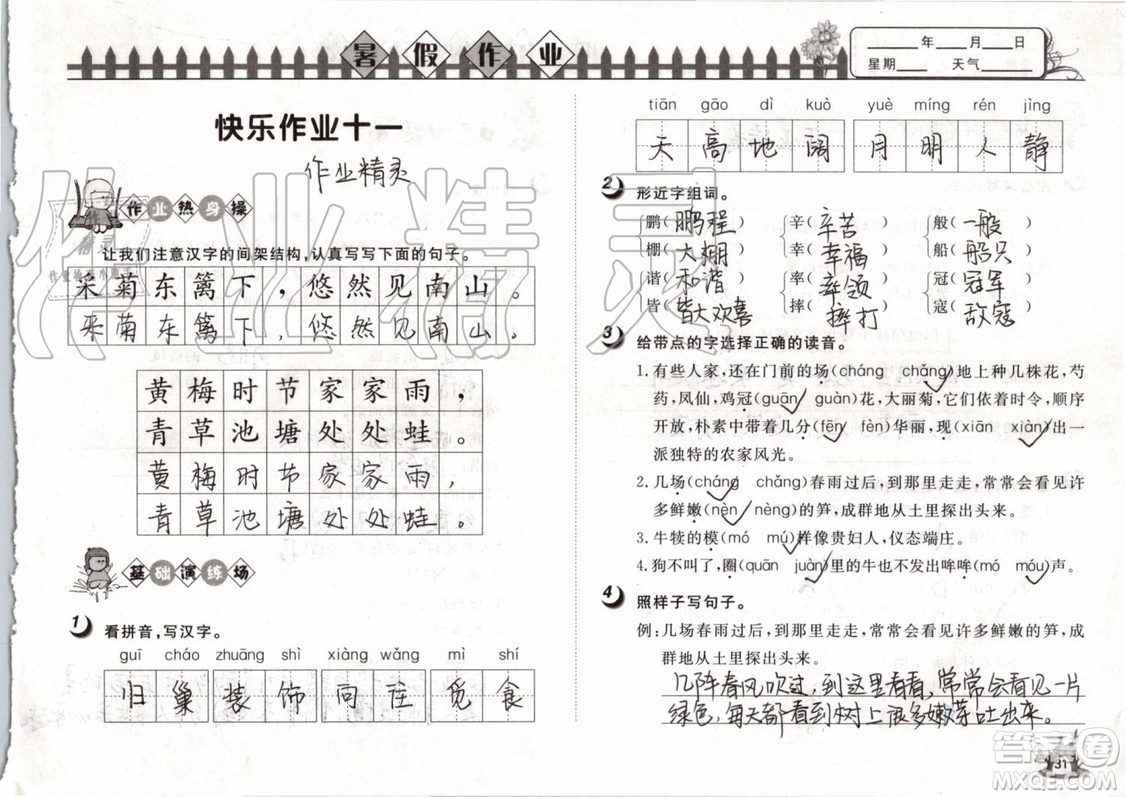 暑假作业
____年____月____日
星期____ 天气____
快乐作业十一
作业精灵
作业热身操
让我们注意汉字的间架结构,认真写写下面的句子。
采菊东篱下,悠然见南山。
采菊东篱下,悠然见南山。
黄梅时节家家雨,
青草池塘处处蛙。
黄梅时节家家雨,
青草池塘处处蛙。
基础演练场
1 看拼音,写汉字。
guī cháo zhuāng shì xiàng wǎng mì shí
归巢 装饰 向往 觅食
tiān gāo dì kuò yuè míng rén jìng
天高地阔 月明人静
2 形近字组词。
鹏(鹏程) 辛(辛苦) 般(一般)
棚(大棚) 幸(幸福) 船(船只)
谐(和谐) 率(率领) 冠(冠军)
皆(皆大欢喜) 摔(摔打) 寇(敌寇)
3 给带点的字选择正确的读音。
1. 有些人家,还在门前的场(cháng chǎng✓)地上种几株花,芍
药,凤仙,鸡冠(guān✓ guàn)花,大丽菊,它们依着时令,顺序
开放,朴素中带着几分(fēn✓ fèn)华丽,现(xiān xiàn✓)出一
派独特的农家风光。
2. 几场(cháng✓ chǎng)春雨过后,到那里走走,常常会看见许
多鲜嫩(nèn✓ nèng)的笋,成群地从土里探出头来。
3. 牛犊的模(mó mú✓)样像贵妇人,仪态端庄。
4. 狗不叫了,圈(quān juàn✓)里的牛也不发出哞哞(mó mōu✓)声。
4 照样子写句子。
例:几场春雨过后,到那里走走,常常会看见许多鲜嫩的笋,成
群地从土里探出头来。
几阵春风吹过,到这里看看,常常会看见一片
绿色,每天都看到树上很多嫩芽吐出来。
31
作业精灵
答案圈
MXQE.COM